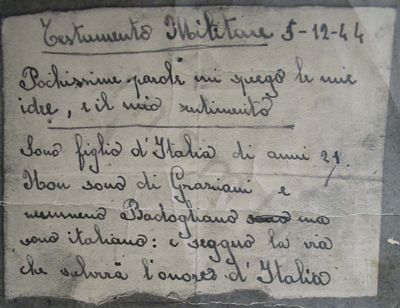 Testamento Militare 5-12-44
Pochissime parole mi spiego le mie
idee, e il mio sentimento
Sono figlio d'Italia di anni 21.
Non sono di Graziani e
nemmeno Badogliano sono ma
sono italiano: e seguo la via
che salverà l'onore d'Italia